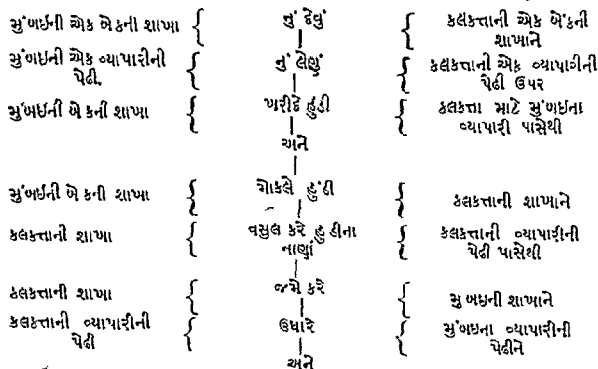 મુંબઈની એક બેંકની શાખા { નું દેવું { કલકત્તાની એક બેંકની
શાખાને
મુંબઈની એક વ્યાપારીની { નું લેણું { કલકત્તાની એક વ્યાપારીની
પેઢી. પેઢી ઉપર
મુંબઈની બેંકની શાખા { ખરીદે હુંડી { કલકત્તા માટે મુંબઈના
વ્યાપારી પાસેથી
અને
મુંબઈની બેંકની શાખા { મોકલે હુંડી { કલકત્તાની શાખાને
કલકત્તાની શાખા { વસુલ કરે હુંડીના { કલકત્તાની વ્યાપારીની
નાણાં પેઢી પાસેથી
કલકત્તાની શાખા { જમે કરે { મુંબઇની શાખાને
કલકત્તાની વ્યાપારીની { ઉધારે { મુંબઇના વ્યાપારીની
પેઢી પેઢીને
અને